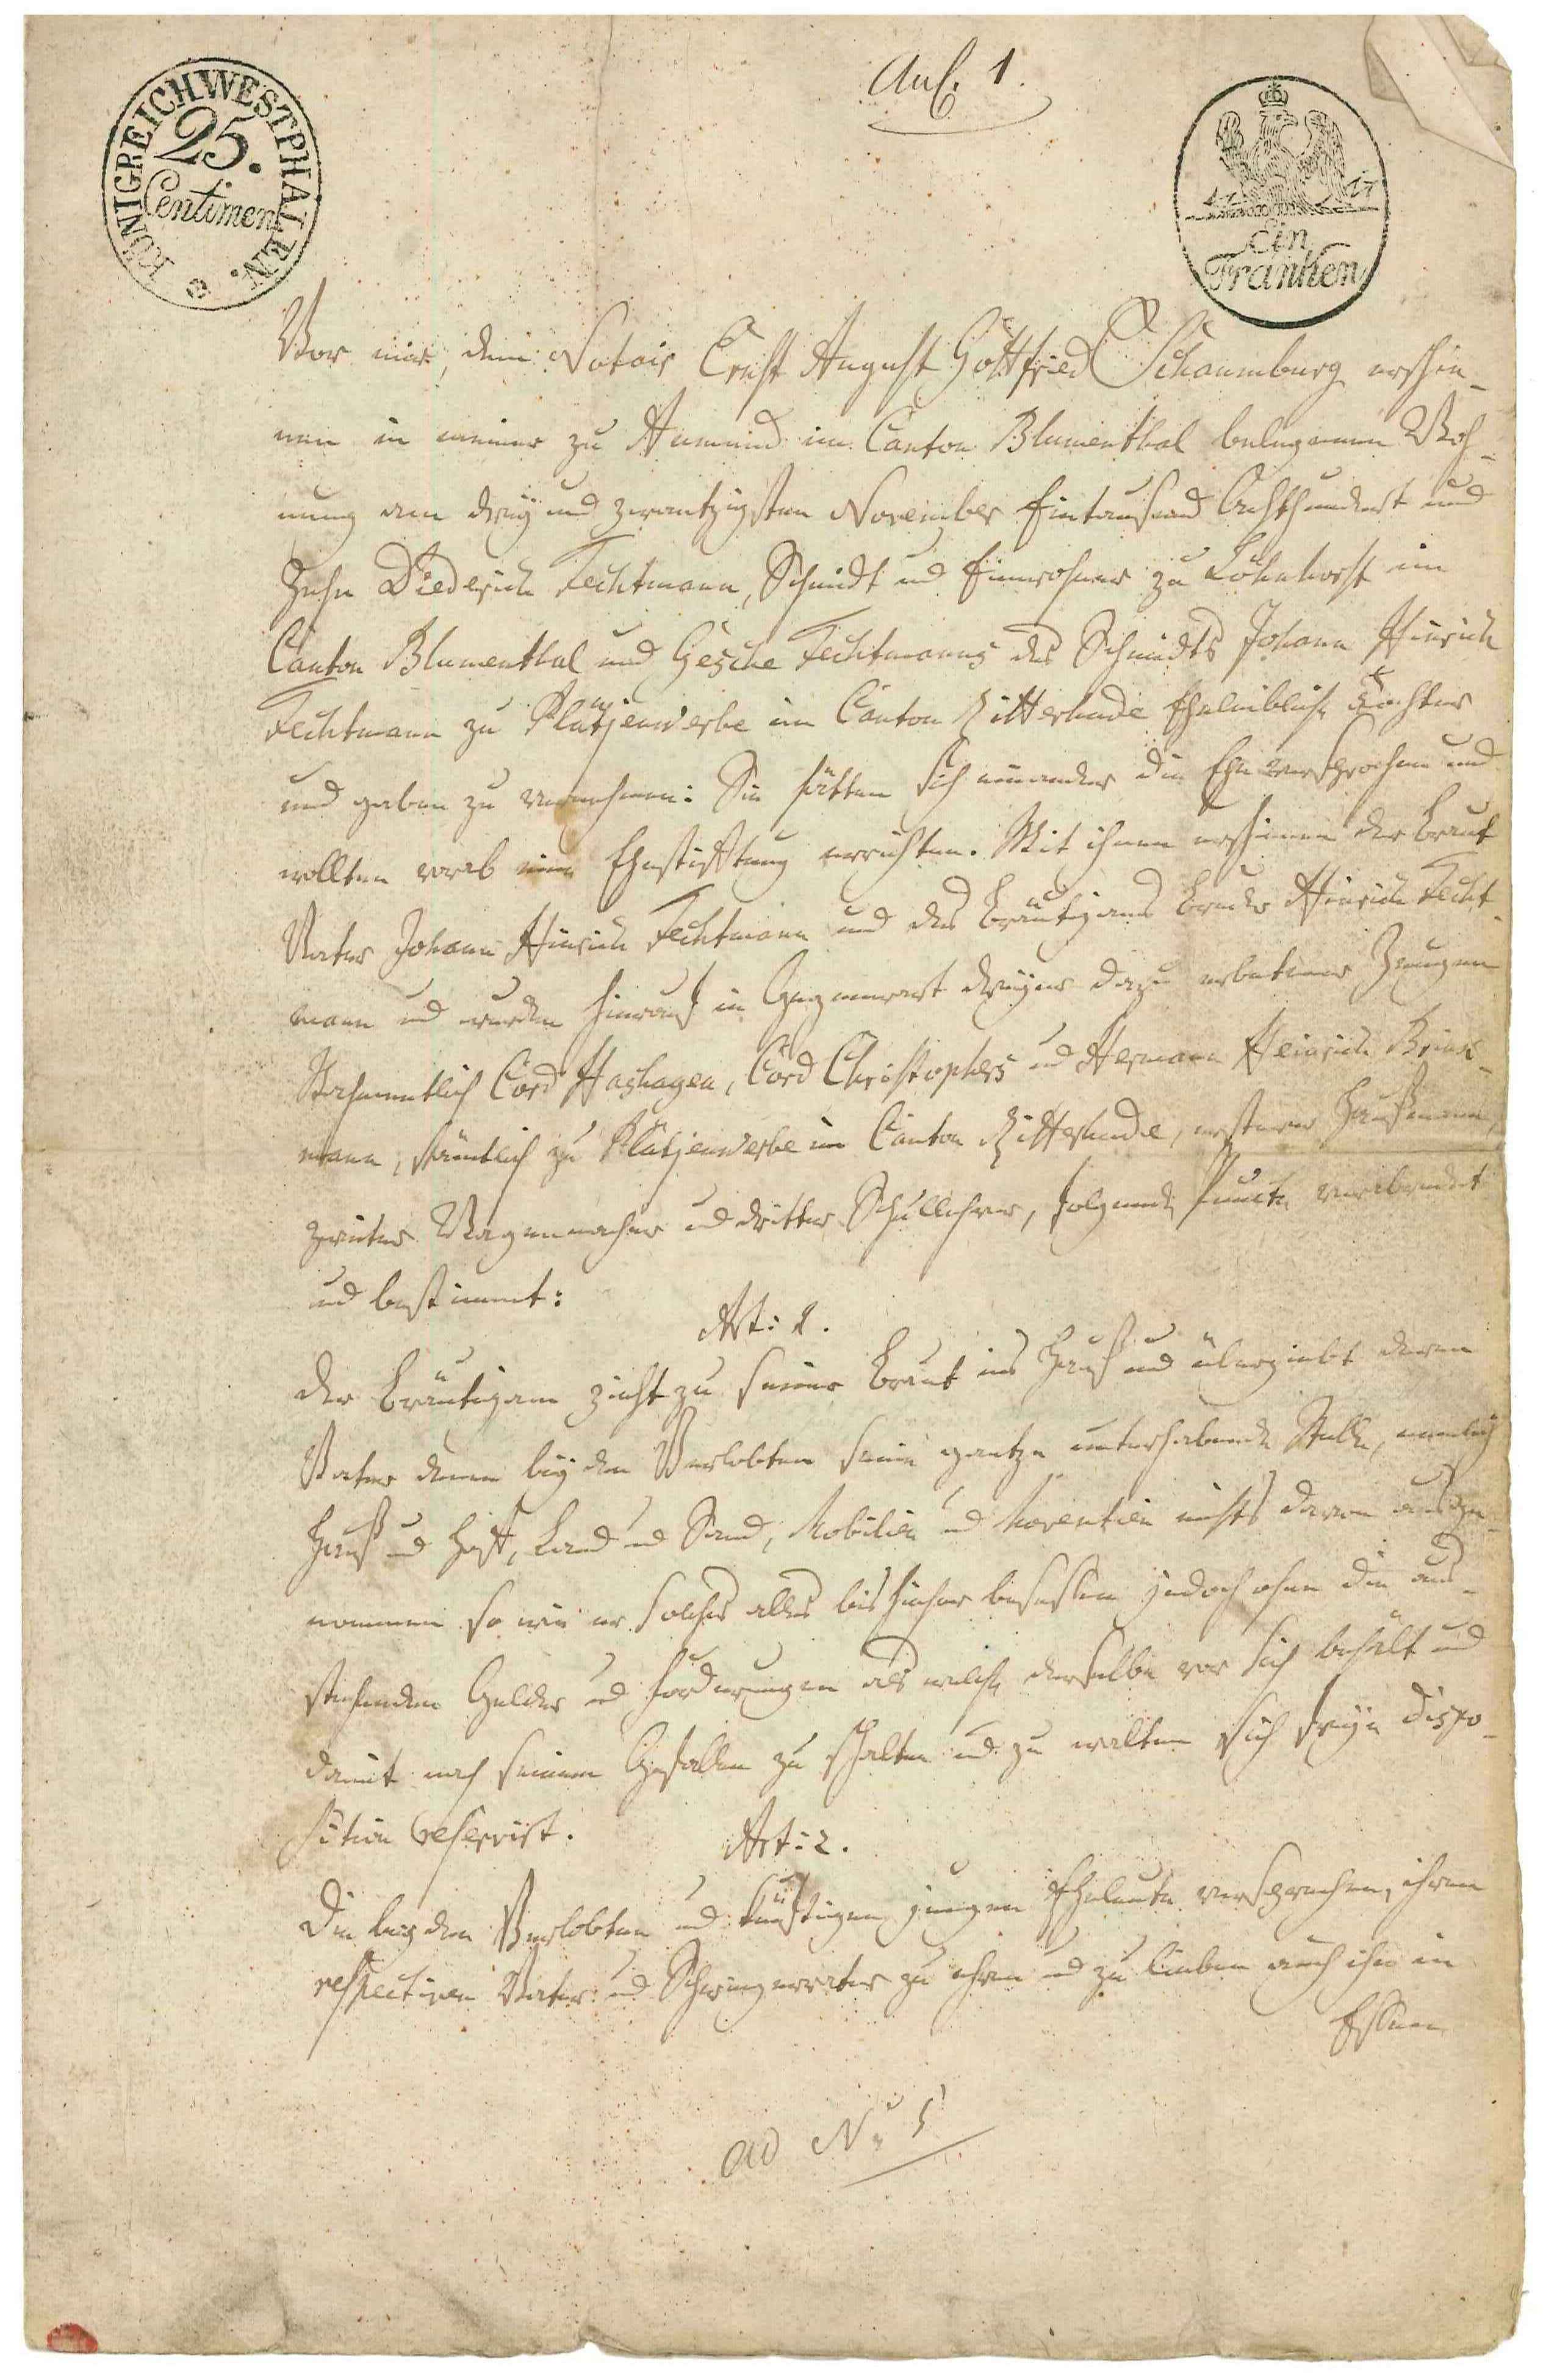 Anl. 1.
KÖNIGREICH WESTPHALEN.
25.
Centimen
Ein
Franken
Vor mir, dem Notair Ernst August Gottfried Schaumburg erschie-
nen in meiner zu Aumund im Canton Blumenthal belegenen Woh-
nung am drey und zwantzigsten November Eintausend Achthundert und
Zehn Diederich Fechtmann, Schmidt und Einwohner zu Löhnhorst im
Canton Blumenthal und Gesche Fechtmanns des Schmidts Johann Hinrich
Fechtmann zu Platjenwerbe im Canton Ritterhude Eheleibliche Tochter
und gaben zu vernehmen: Sie hätten sich einander die Ehe versprochen und
wollten vorab eine Ehestifftung errichten. Mit ihnen erschienen der Braut
Vater Johann Hinrich Fechtmann und des Bräutigams Bruder Hinrich Fecht-
mann und wurden hierauf in Gegenwart dreyer dazu erbetener Zeugen
Nahmentlich Cord Hashagen, Cord Christophers und Hermann Heinrich Brink-
mann, sämtlich zu Platjenwerbe im Canton Ritterhude, ersterer Haußmann,
zweiter Wagenmacher und dritter Schullehrer, folgende Puncte verabredet
und bestimmt:
Art: 1.
Der Bräutigam zieht zu seiner Braut ins Hauß und übergiebt deren
Vater denen beyden Verlobten seine gantze unterhabende Stelle, nemlich
Hauß und Hoff, Land und Sand, Mobilien und Moventien nichts davon ausge-
nommen so wie er solches alles bis hieher besessen jedoch ohne die aus-
stehenden Gelder und Forderungen als welche derselbe vor sich behält und
damit nach seinem Gefallen zu schalten und zu walten sich freye Dispo-
sition reservirt.
Art: 2.
Die beyden Verlobten und künftigen jungen Eheleute versprechen, ihren
respectiven Vater und Schwiegervater zu ehren und zu lieben auch ihn in
Essen
ad No 5